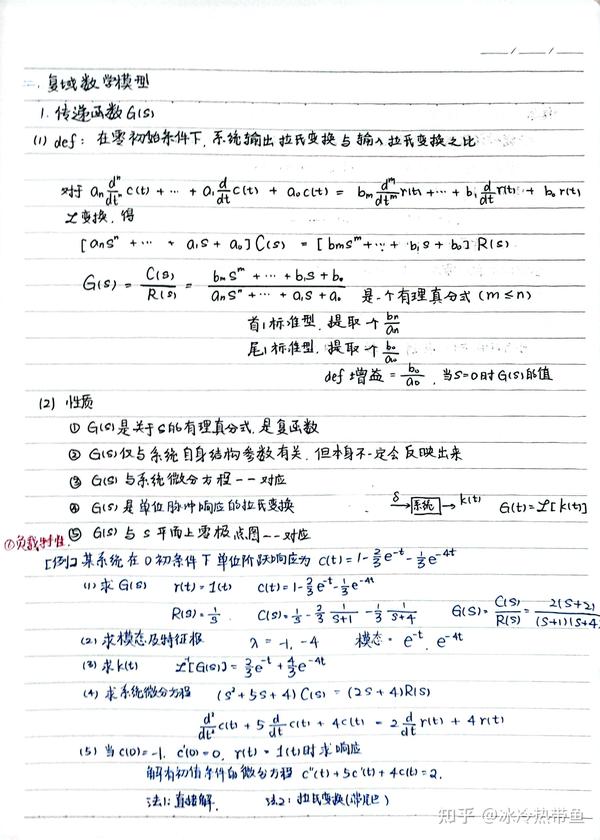 二. 复域数学模型
1. 传递函数 G(s)
(1) def: 在零初始条件下, 系统输出拉氏变换与输入拉氏变换之比
对于 aₙ dⁿ/dtⁿ c(t) + ··· + a₁ d/dt c(t) + a₀c(t) = bₘ dᵐ/dtᵐ r(t) + ··· + b₁ d/dt r(t) + b₀ r(t)
ℒ变换, 得
[aₙsⁿ + ··· + a₁s + a₀] C(s) = [bₘsᵐ + ··· + b₁s + b₀] R(s)
G(s) = C(s)/R(s) = (bₘsᵐ + ··· + b₁s + b₀)/(aₙsⁿ + ··· + a₁s + a₀) 是一个有理真分式 (m ≤ n)
首1标准型, 提取一个 bₙ/aₙ
尾1标准型, 提取一个 b₀/a₀
def 增益 = b₀/a₀, 当s=0时G(s)的值
(2) 性质
① G(s)是关于s的有理真分式, 是复函数
② G(s)仅与系统自身结构参数有关, 但本身不一定会反映出来
③ G(s)与系统微分方程一一对应
④ G(s)是单位脉冲响应的拉氏变换 δ → 系统 → k(t) G(t)=ℒ[k(t)]
⑤ G(s)与s平面上零极点图一一对应
①负载特性.
[例2] 某系统在0初条件下单位阶跃响应为 c(t)=1-2/3 e^-t - 1/3 e^-4t
(1) 求G(s) r(t)=1(t) c(t)=1-2/3 e^-t - 1/3 e^-4t
R(s)=1/s C(s)=1/s - 2/3 1/(s+1) - 1/3 1/(s+4) G(s)=C(s)/R(s)=2(s+2)/(s+1)(s+4)
(2) 求模态及特征根 λ=-1, -4 模态: e^-t, e^-4t
(3) 求k(t) ℒ⁻¹[G(s)]=2/3 e^-t + 4/3 e^-4t
(4) 求系统微分方程 (s²+5s+4)C(s)=(2s+4)R(s)
d²/dt² c(t) + 5 d/dt c(t) + 4c(t) = 2 d/dt r(t) + 4r(t)
(5) 当c(0)=-1, c'(0)=0, r(t)=1(t)时求响应
解有初值条件的微分方程 c''(t)+5c'(t)+4c(t)=2.
法1: 直接解. 法2: 拉氏变换
知乎 @冰冷热带鱼